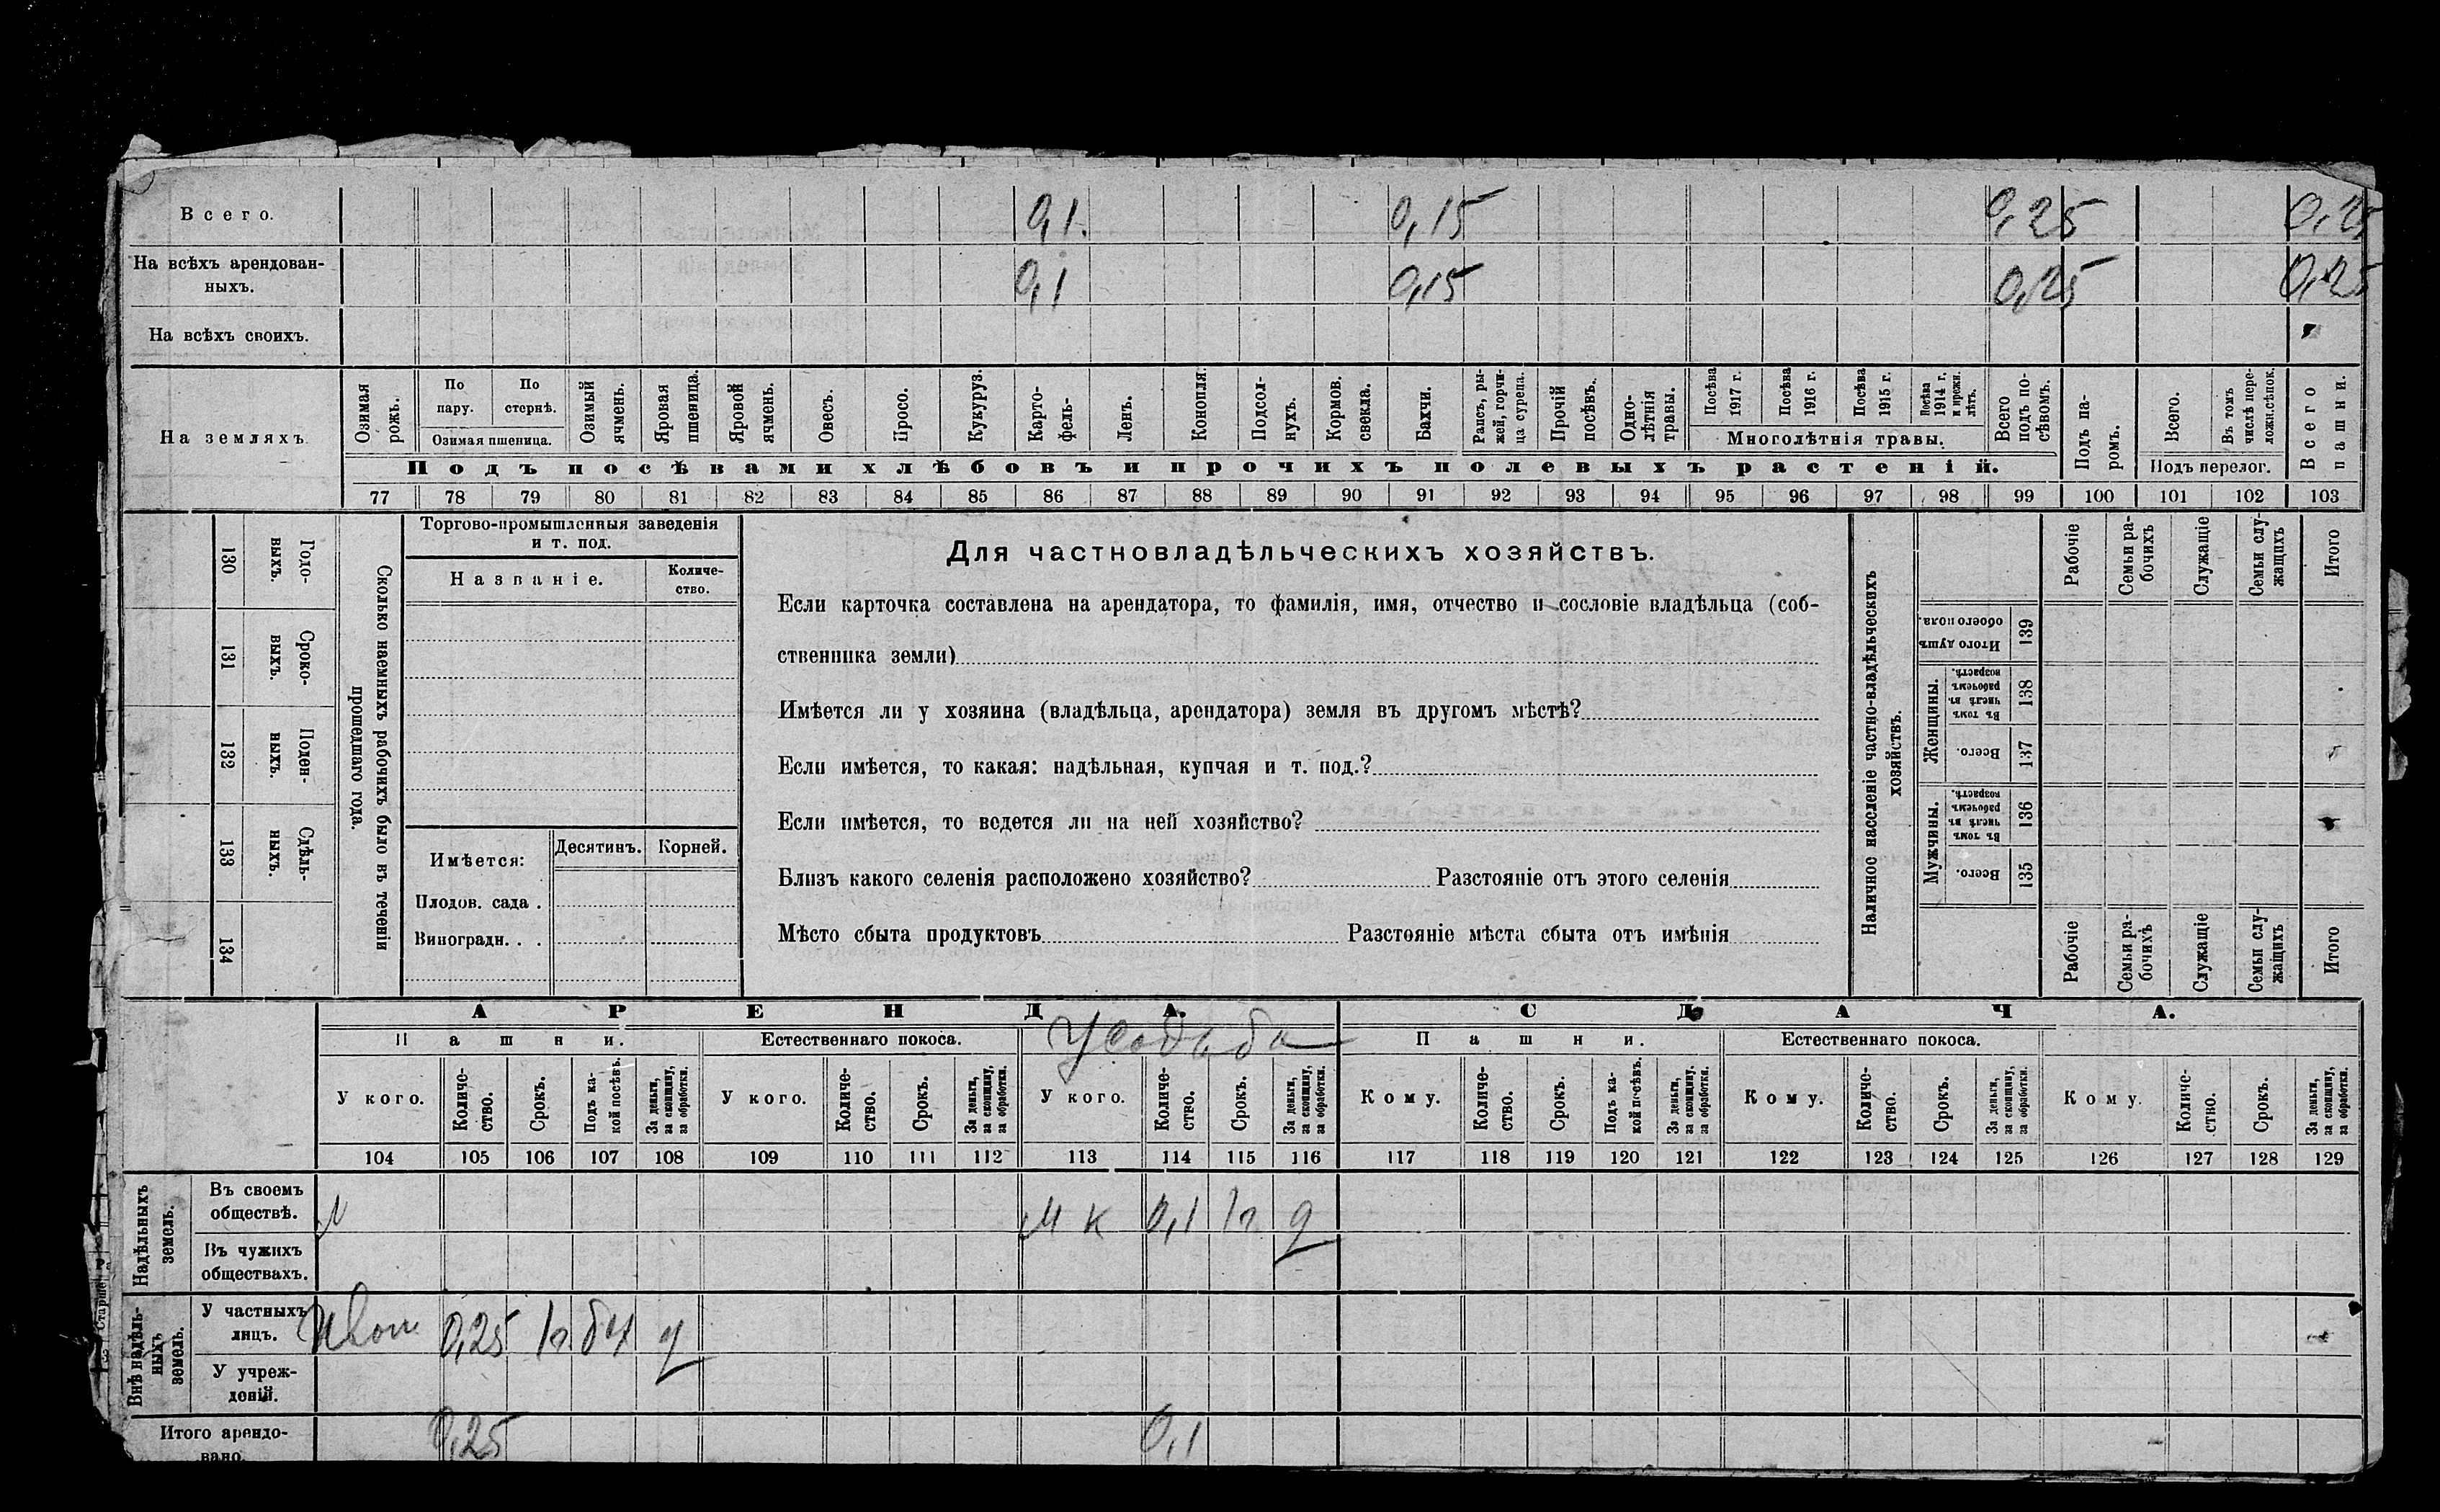 Всего. 0,1. 0,15 0,25 0,25
На всѣхъ арендован-
ныхъ. 0,1 0,15 0,25 0,25
На всѣхъ своихъ.
На земляхъ.
Озимая рожь.
По пару.
По стернѣ.
Озимая пшеница.
Озимый ячмень.
Яровая пшеница.
Яровой ячмень.
Овесъ.
Просо.
Кукуруз.
Карто-
фель-
Ленъ.
Конопля.
Подсол-
нухъ.
Кормов.
свекла.
Бахчи.
Рапсъ, ры-
жей, горчи-
ца сурепа.
Прочій
посѣвъ.
Одно-
лѣтнія
травы.
Посѣва
1917 г.
Посѣва
1916 г.
Посѣва
1915 г.
Посѣва
1914 г.
и прежн.
лѣтъ.
Многолѣтнія травы.
Всего
подъ по-
сѣвомъ.
Подъ па-
ромъ.
Всего.
Въ томъ
числѣ пере-
ложн.сѣнок.
Подъ перелог.
Всего
пашни.
Подъ посѣвами хлѣбовъ и прочихъ полевыхъ растеній.
77 78 79 80 81 82 83 84 85 86 87 88 89 90 91 92 93 94 95 96 97 98 99 100 101 102 103
130 Годо-
выхъ.
131 Сроко-
выхъ.
132 Поден-
ныхъ.
133 Сдѣль-
ныхъ.
134
Сколько наемныхъ рабочихъ было въ теченіи
прошедшаго года.
Торгово-промышленныя заведенія
и т. под.
Названіе.
Количе-
ство.
Имѣется:
Десятинъ. Корней.
Плодов. сада .
Виноградн. . .
Для частновладѣльческихъ хозяйствъ.
Если карточка составлена на арендатора, то фамилія, имя, отчество и сословіе владѣльца (соб-
ственника земли)
Имѣется ли у хозяина (владѣльца, арендатора) земля въ другомъ мѣстѣ?
Если имѣется, то какая: надѣльная, купчая и т. под.?
Если имѣется, то ведется ли на ней хозяйство?
Близъ какого селенія расположено хозяйство? Разстояніе отъ этого селенія
Мѣсто сбыта продуктовъ Разстояніе мѣста сбыта отъ имѣнія
Наличное населеніе частно-владѣльческихъ
хозяйствъ.
Рабочіе
Семьи ра-
бочихъ
Служащіе
Семьи слу-
жащихъ
Итого
Итого душъ
обоего пола.
139
Женщины.
Въ томъ
числѣ въ
рабочемъ
возрастѣ.
138
Всего.
137
Мужчины.
Въ томъ
числѣ въ
рабочемъ
возрастѣ.
136
Всего.
135
Рабочіе
Семьи ра-
бочихъ
Служащіе
Семьи слу-
жащихъ
Итого
АРЕНДА.
СДАЧА.
Пашни.
Естественнаго покоса.
Усадьба
Пашни.
Естественнаго покоса.
У кого.
Количе-
ство.
Срокъ.
Подъ ка-
кой посѣвъ.
За деньги,
за скопщину,
за обработки.
У кого.
Количе-
ство.
Срокъ.
За деньги,
за скопщину,
за обработки.
У кого.
Количе-
ство.
Срокъ.
За деньги,
за скопщину,
за обработки.
Кому.
Количе-
ство.
Срокъ.
Подъ ка-
кой посѣвъ.
За деньги,
за скопщину,
за обработки.
Кому.
Количе-
ство.
Срокъ.
За деньги,
за скопщину,
за обработки.
Кому.
Количе-
ство.
Срокъ.
За деньги,
за скопщину,
за обработки.
104 105 106 107 108 109 110 111 112 113 114 115 116 117 118 119 120 121 122 123 124 125 126 127 128 129
Надѣльныхъ
земель.
Въ своемъ
обществѣ. 0,1
Въ чужихъ
обществахъ.
Старше
Внѣ надѣль-
ныхъ
земель.
У частныхъ
лицъ. 0,25
У учреж-
деній.
Итого арендо-
вано. 0,25 0,1